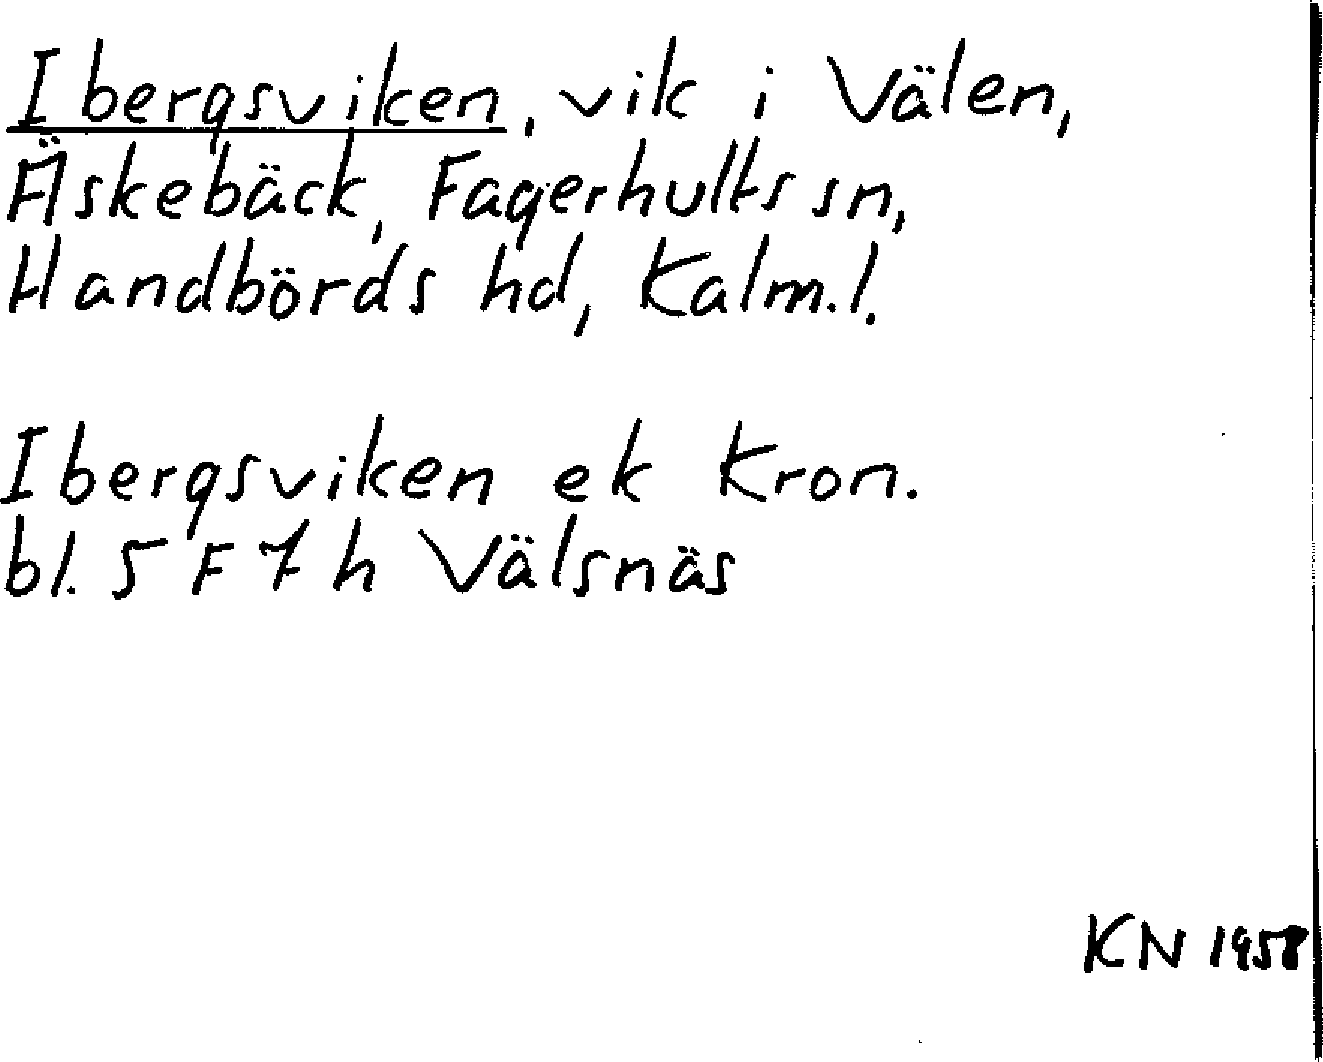 Ibergsviken, vik i Välen,
Äskebäck, Fagerhults sn,
Handbörds hd, Kalm.l.
Ibergsviken ek Kron.
bl. 5 F 7 h Välsnäs
KN 1958